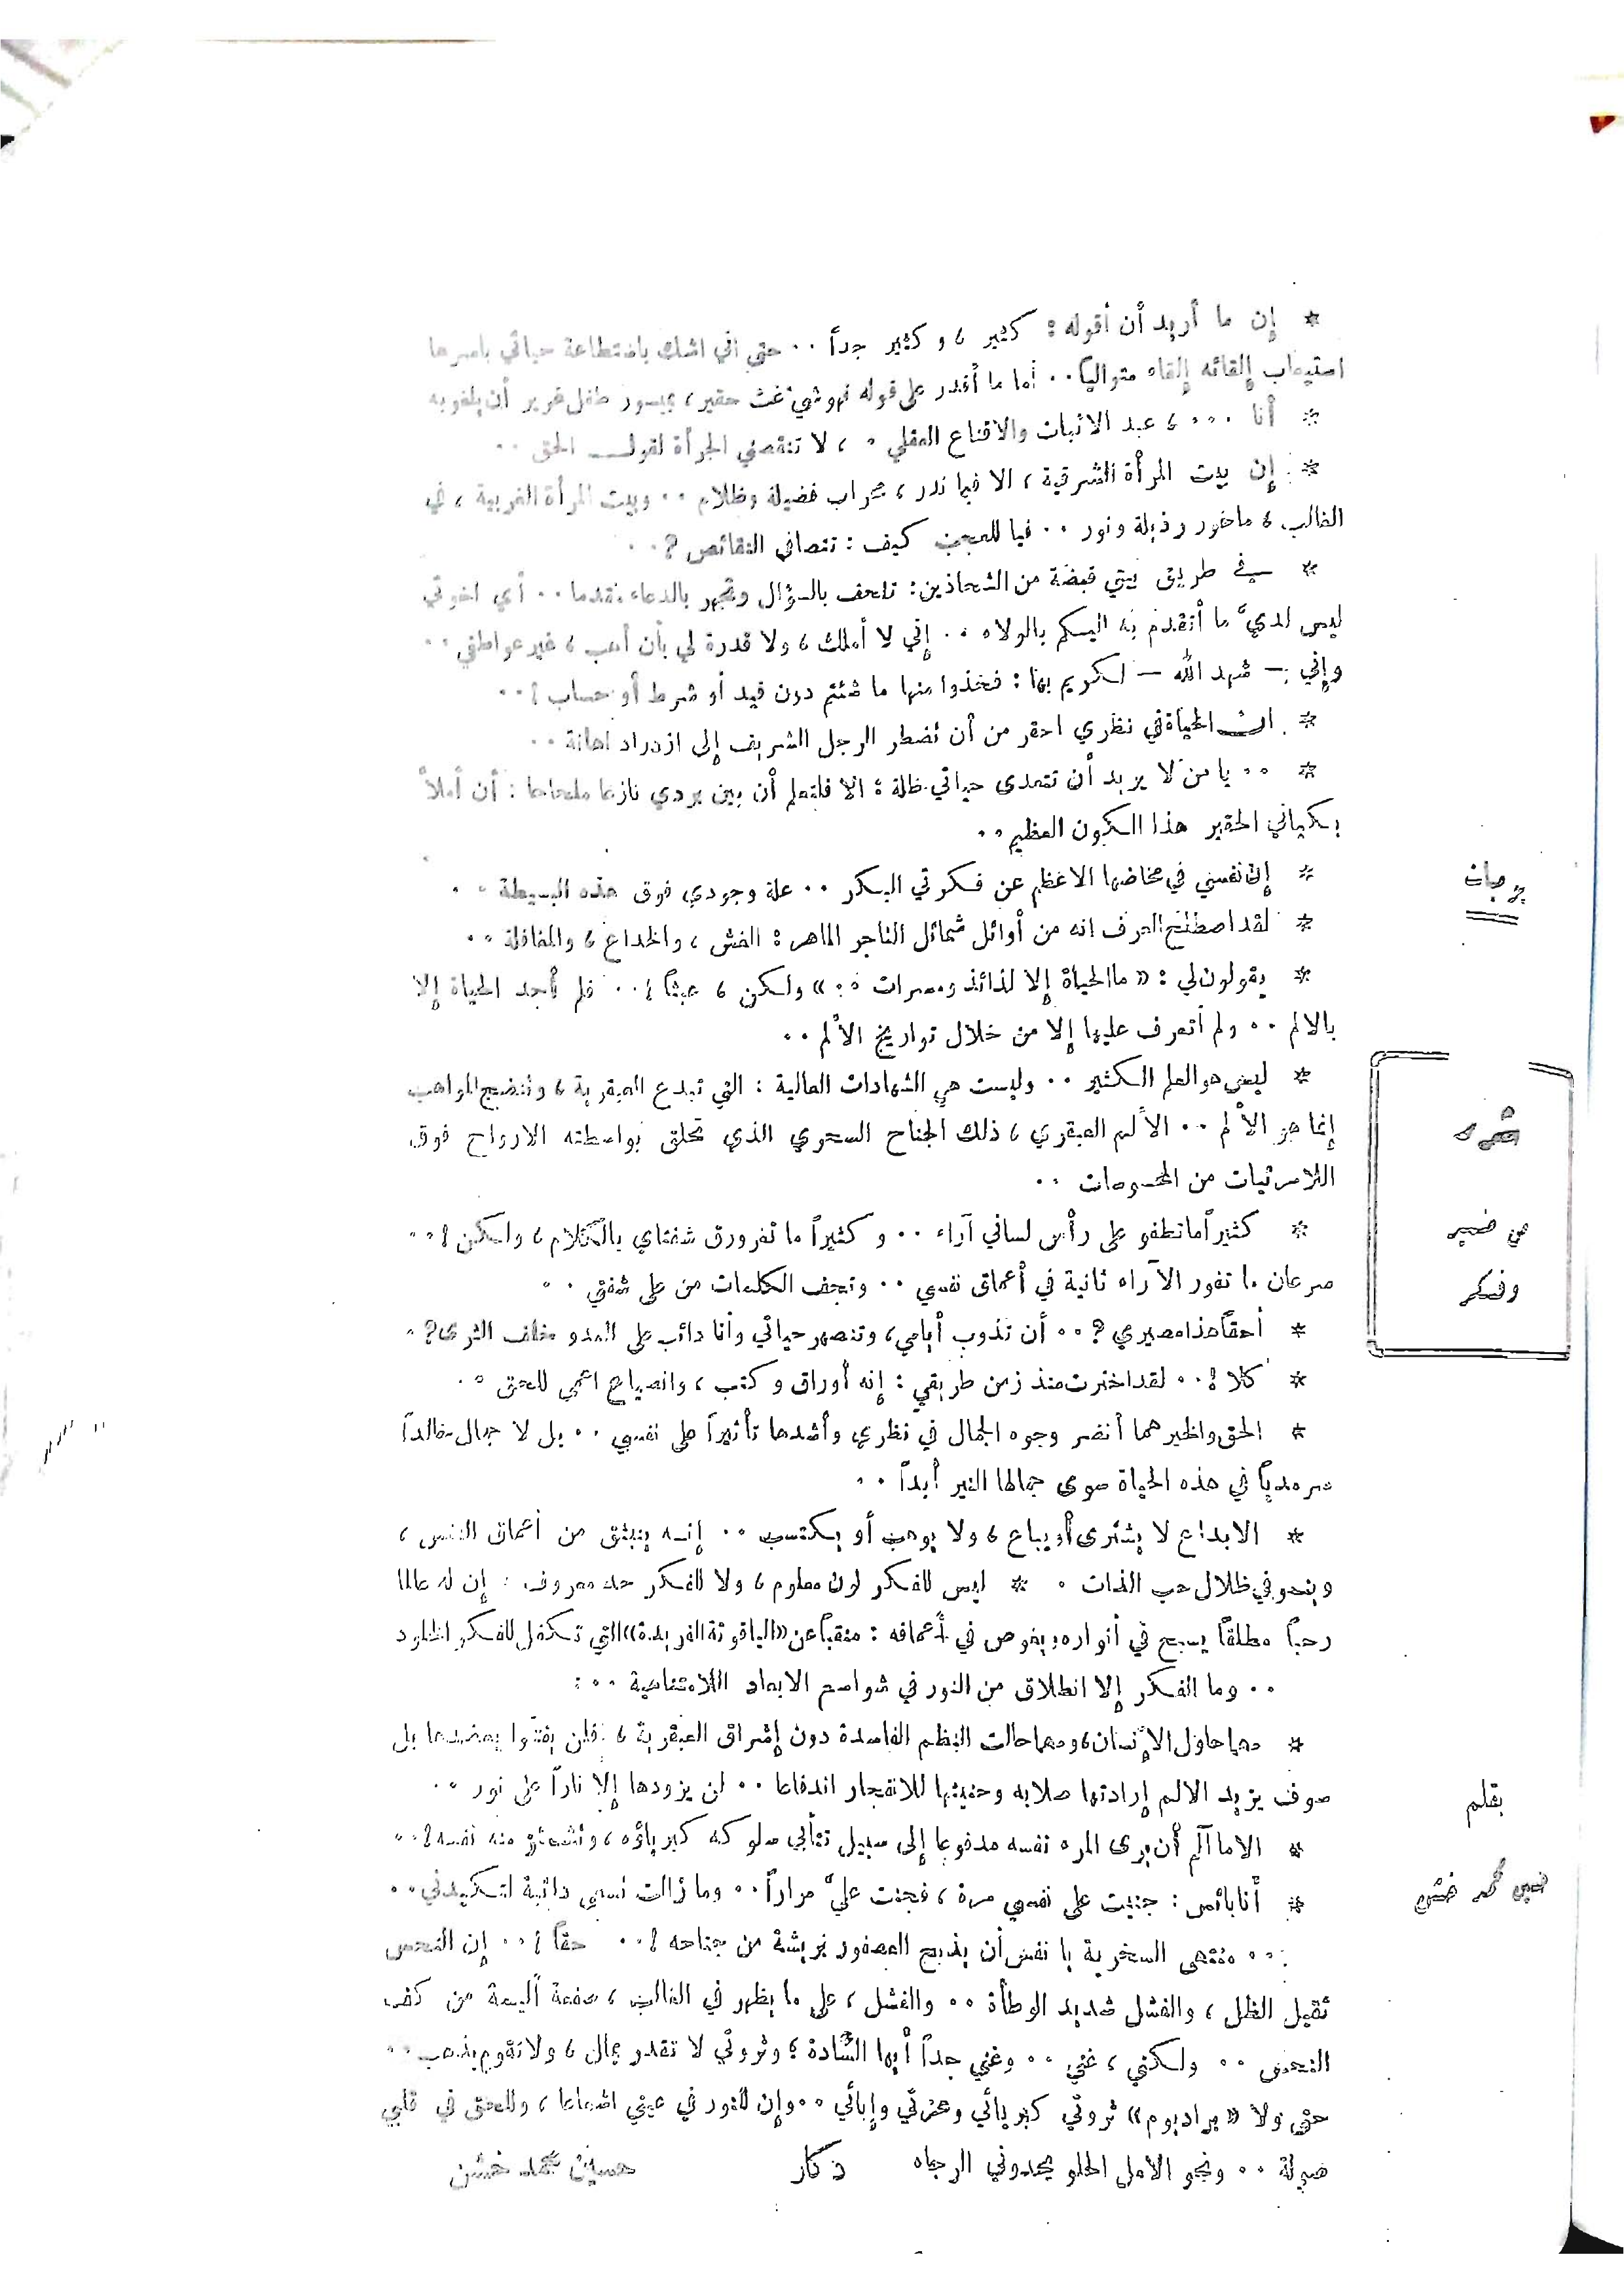 * إن ما أريد أن أقوله : كثير ، و كثير جداً ٠٠ حتى اني اشك باستطاعة حياتي باسرها
استيعاب إلقائه إلقاء متوالياً ٠٠ أما ما أقدر على قوله فهو شيء غث حقير ، بيسور طفل غرير أن يلغو به
* أنا ٠٠٠ ، عبد الاثبات والاقناع العقلي ٠ ، لا تنقصني الجرأة لقول الحق ٠٠
* إن بيت المرأة الشرقية ، الا فيما ندر ، محراب فضيلة وظلام ٠٠ وبيت المرأة الغربية ، في
الغالب ، ماخور رذيلة ونور ٠٠ فيا للعجب كيف : تتصافى النقائص ? ٠٠
* في طريق بيتي قبضة من الشحاذين : تلحف بالسؤال وتجهر بالدعاء نقدما ٠٠ أي اخوتي
ليس لديّ ما أتقدم به اليكم بالولاء ٠٠ إني لا أملك ، ولا قدرة لي بأن أهب ، غير عواطفي ٠٠
وإني — شهد الله — لكريم بها : فخذوا منها ما شئتم دون قيد أو شرط أو حساب ! ٠٠
* ان الحياة في نظري احقر من أن تضطر الرجل الشريف إلى ازدراد اهانة ٠٠
* ٠٠ يا من لا يريد أن تتعدى حياتي ظله : الا فلتعلم أن بين بردي نازعا ملحاحا : أن أملأ
بكياني الحقير هذا الكون العظيم ٠٠
* إن نفسي في مخاضها الاعظم عن فكرتي البكر ٠٠ علة وجودي فوق هذه البسيطة ٠٠
* لقد اصطلح العرف انه من أوائل شمائل التاجر الماهر : الغش ، والخداع ، والمخاتلة ٠٠
* يقولون لي : « ما الحياة إلا لذائذ ومسرات ٠ : » ولكن ، عبثاً ! ٠٠ فلم أجد الحياة إلا
بالالم ٠٠ ولم أتعرف عليها إلا من خلال تواريخ الألم ٠٠
* ليس هو العلم الكثير ٠٠ وليست هي الشهادات العالية : التي تبدع العبقرية ، وتنضج المواهب
إنما هو الألم ٠٠ الألم العبقري ، ذلك الجناح السحري الذي تحلق بواسطته الارواح فوق
اللامرئيات من المحسوسات ٠٠
* كثيراً ما تطفو على رأس لساني آراء ٠٠ و كثيراً ما تغرورق شفتاي بالكلام ، ولكن ! ٠٠
سرعان ما تغور الآراء ثانية في أعماق نفسي ٠٠ وتجف الكلمات من على شفتي ٠٠
* أحقاً هذا مصيري ? ٠٠ أن تذوب أيامي ، وتنصهر حياتي وأنا دائب على العدو خلف الثرى ? ٠
* كلا ! ٠٠ لقد اخترت منذ زمن طريقي : إنه أوراق و كتب ، وانصياع اعمى للحق ٠٠
* الحق والخير هما أنضر وجوه الجمال في نظري وأشدها تأثيراً على نفسي ٠٠ بل لا جمال خالداً
سرمدياً في هذه الحياة سوى جمالها النير أبداً ٠٠
* الابداع لا يشترى أو يباع ، ولا يوهب أو يكتسب ٠٠ إنه ينبثق من أعماق النفس ،
وينمو في ظلال حب الذات ٠ * ليس للفكر لون معلوم ، ولا للفكر حد معروف : إن له عالما
رحباً مطلقاً يسبح في أنواره ويغوص في أعماقه : منقباً عن « الياقوتة الفريدة » التي تكفل للفكر الخلود
٠٠ وما الفكر إلا انطلاق من النور في شواسع الابعاد اللامتناهية ٠٠ :
* مهما حاول الإنسان ، ومهما حالت النظم الفاسدة دون إشراق العبقرية ، فلن يفتّوا بعضدها بل
سوف يزيد الالم إرادتها صلابه وحنينها للانفجار اندفاعا ٠٠ لن يزودها إلا ناراً على نور ٠٠
* الا ما آلم أن يرى المرء نفسه مدفوعا إلى سبيل تتأبى سلوكه كبرياؤه ، وتشمئز منه نفسه ! ٠٠
* أنا بائس : جنيت على نفسي مرة ، فجنت عليّ مراراً ٠٠ وما زالت نسمى دائبة لتكيدني ٠٠
: ٠٠ منتهى السخرية يا نفس أن يذبح العصفور بريشة من جناحه ! ٠٠ حقاً ! ٠٠ إن النحس
ثقيل الظل ، والفشل شديد الوطأة ٠٠ والفشل ، على ما يظهر في الغالب ، صفعة أليمة من كف
النحس ٠٠ ولكني ، غني ٠٠ وغني جداً أيها السادة ؛ وثروتي لا تقدر بمال ، ولا تقوم بذهب ٠٠
حتى ولا « براديوم » ثروتي كبريائي وعزتي وإبائي ٠٠ وإن للنور في عيني اشعاعا ، وللحق في قلبي
صولة ٠٠ ونحو الامل الحلو يحدوني الرجاء
دكار
حسين محمد خشن
من ضمير
وفكر
بقلم
حسين محمد خشن